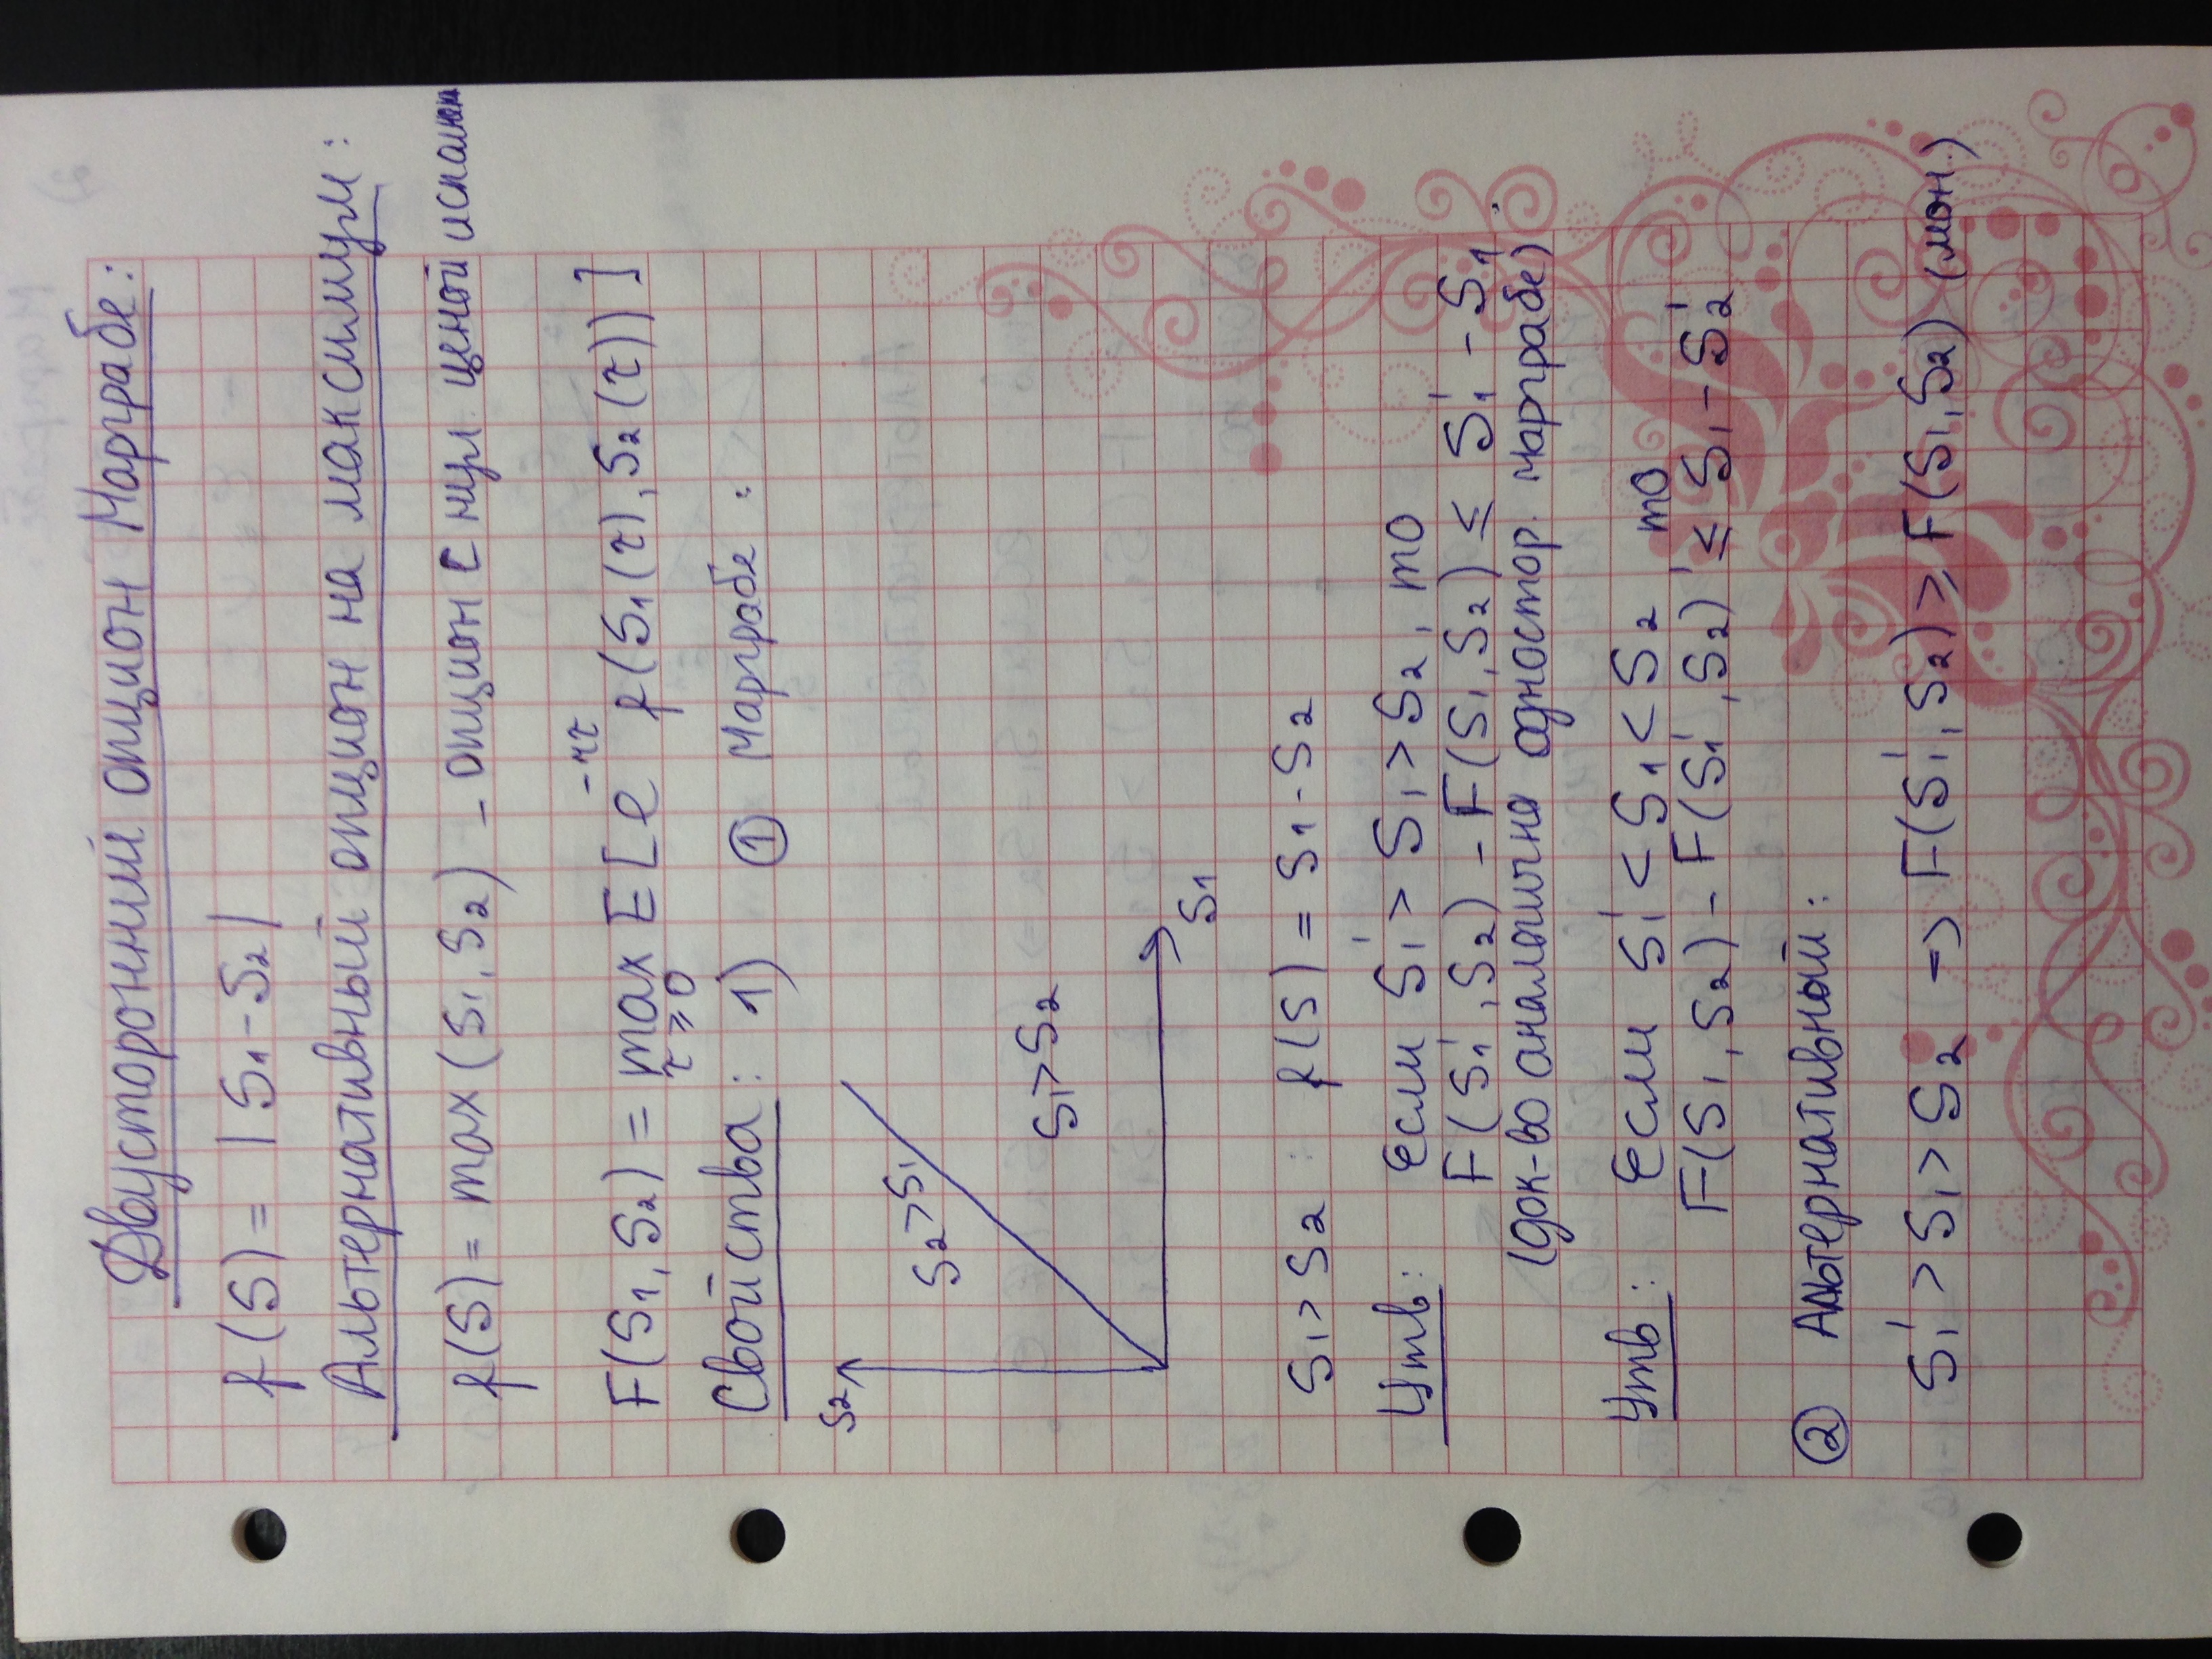 Двусторонний опцион Марграбе:
f(S) = |S₁ - S₂|
Альтернативный опцион на максимум:
f(S) = max(S₁, S₂) - опцион с нул. ценой исполнен
F(S₁, S₂) = max E[e^(-rτ) f(S₁(τ), S₂(τ))]
τ ≥ 0
Свойства: 1) ① Марграбе:
S₂
S₂ > S₁
S₁ > S₂
S₁
S₁ > S₂ : f(S) = S₁ - S₂
Утв: Если S₁' > S₁ > S₂, то
F(S₁', S₂) - F(S₁, S₂) ≤ S₁' - S₁.
(док-во аналогично одностор. марграбе)
Утв: Если S₁' < S₁ < S₂ то
F(S₁, S₂) - F(S₁', S₂)' ≤ S₁ - S₂'
② Альтернативный:
S₁' > S₁ > S₂ => F(S₁', S₂) ≥ F(S₁, S₂) (мон.)